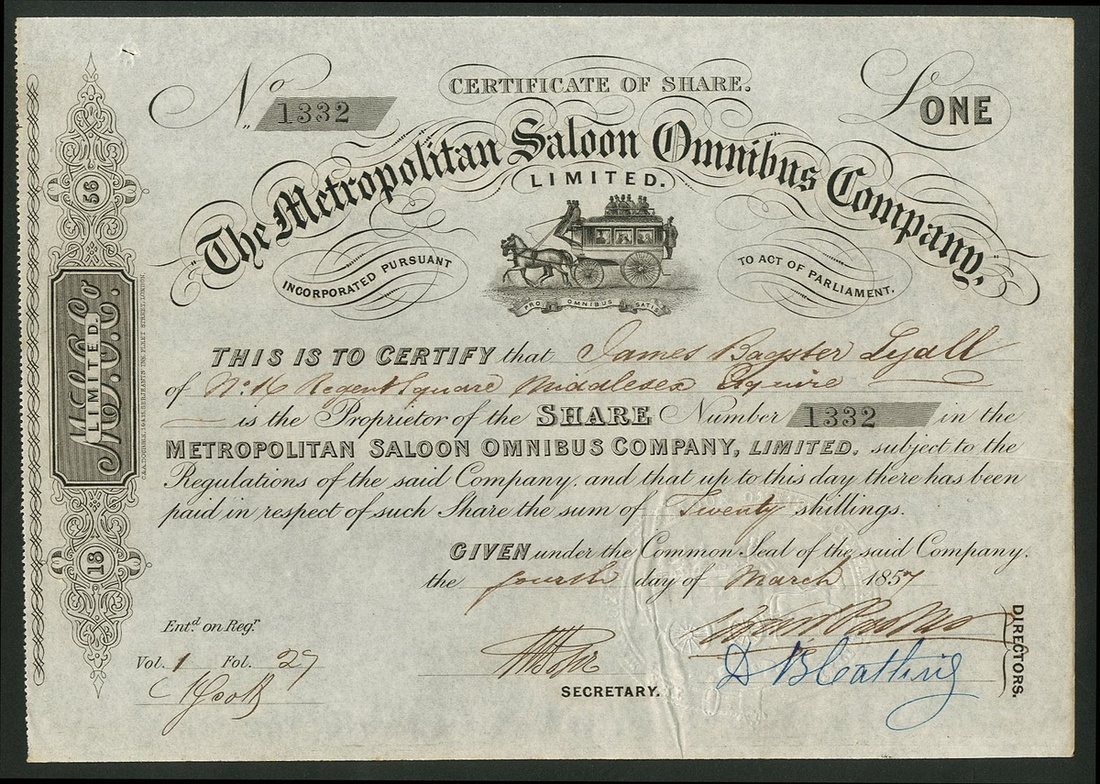 No. 1332
CERTIFICATE OF SHARE.
£ ONE
"The Metropolitan Saloon Omnibus Company,"
LIMITED.
INCORPORATED PURSUANT
TO ACT OF PARLIAMENT.
PRO OMNIBUS SATIS
THIS IS TO CERTIFY that James Bagster Lyall
of No. 16 Regent Square Middlesex Esquire
is the Proprietor of the SHARE Number 1332 in the
METROPOLITAN SALOON OMNIBUS COMPANY, LIMITED. subject to the
Regulations of the said Company, and that up to this day there has been
paid in respect of such Share the sum of Twenty shillings.
GIVEN under the Common Seal of the said Company,
the fourth day of March 1857
Ent.d on Reg.r
Vol. 1 Fol. 27
SECRETARY.
D B Catling
DIRECTORS.
18 56
M.S.O. Co.
LIMITED.